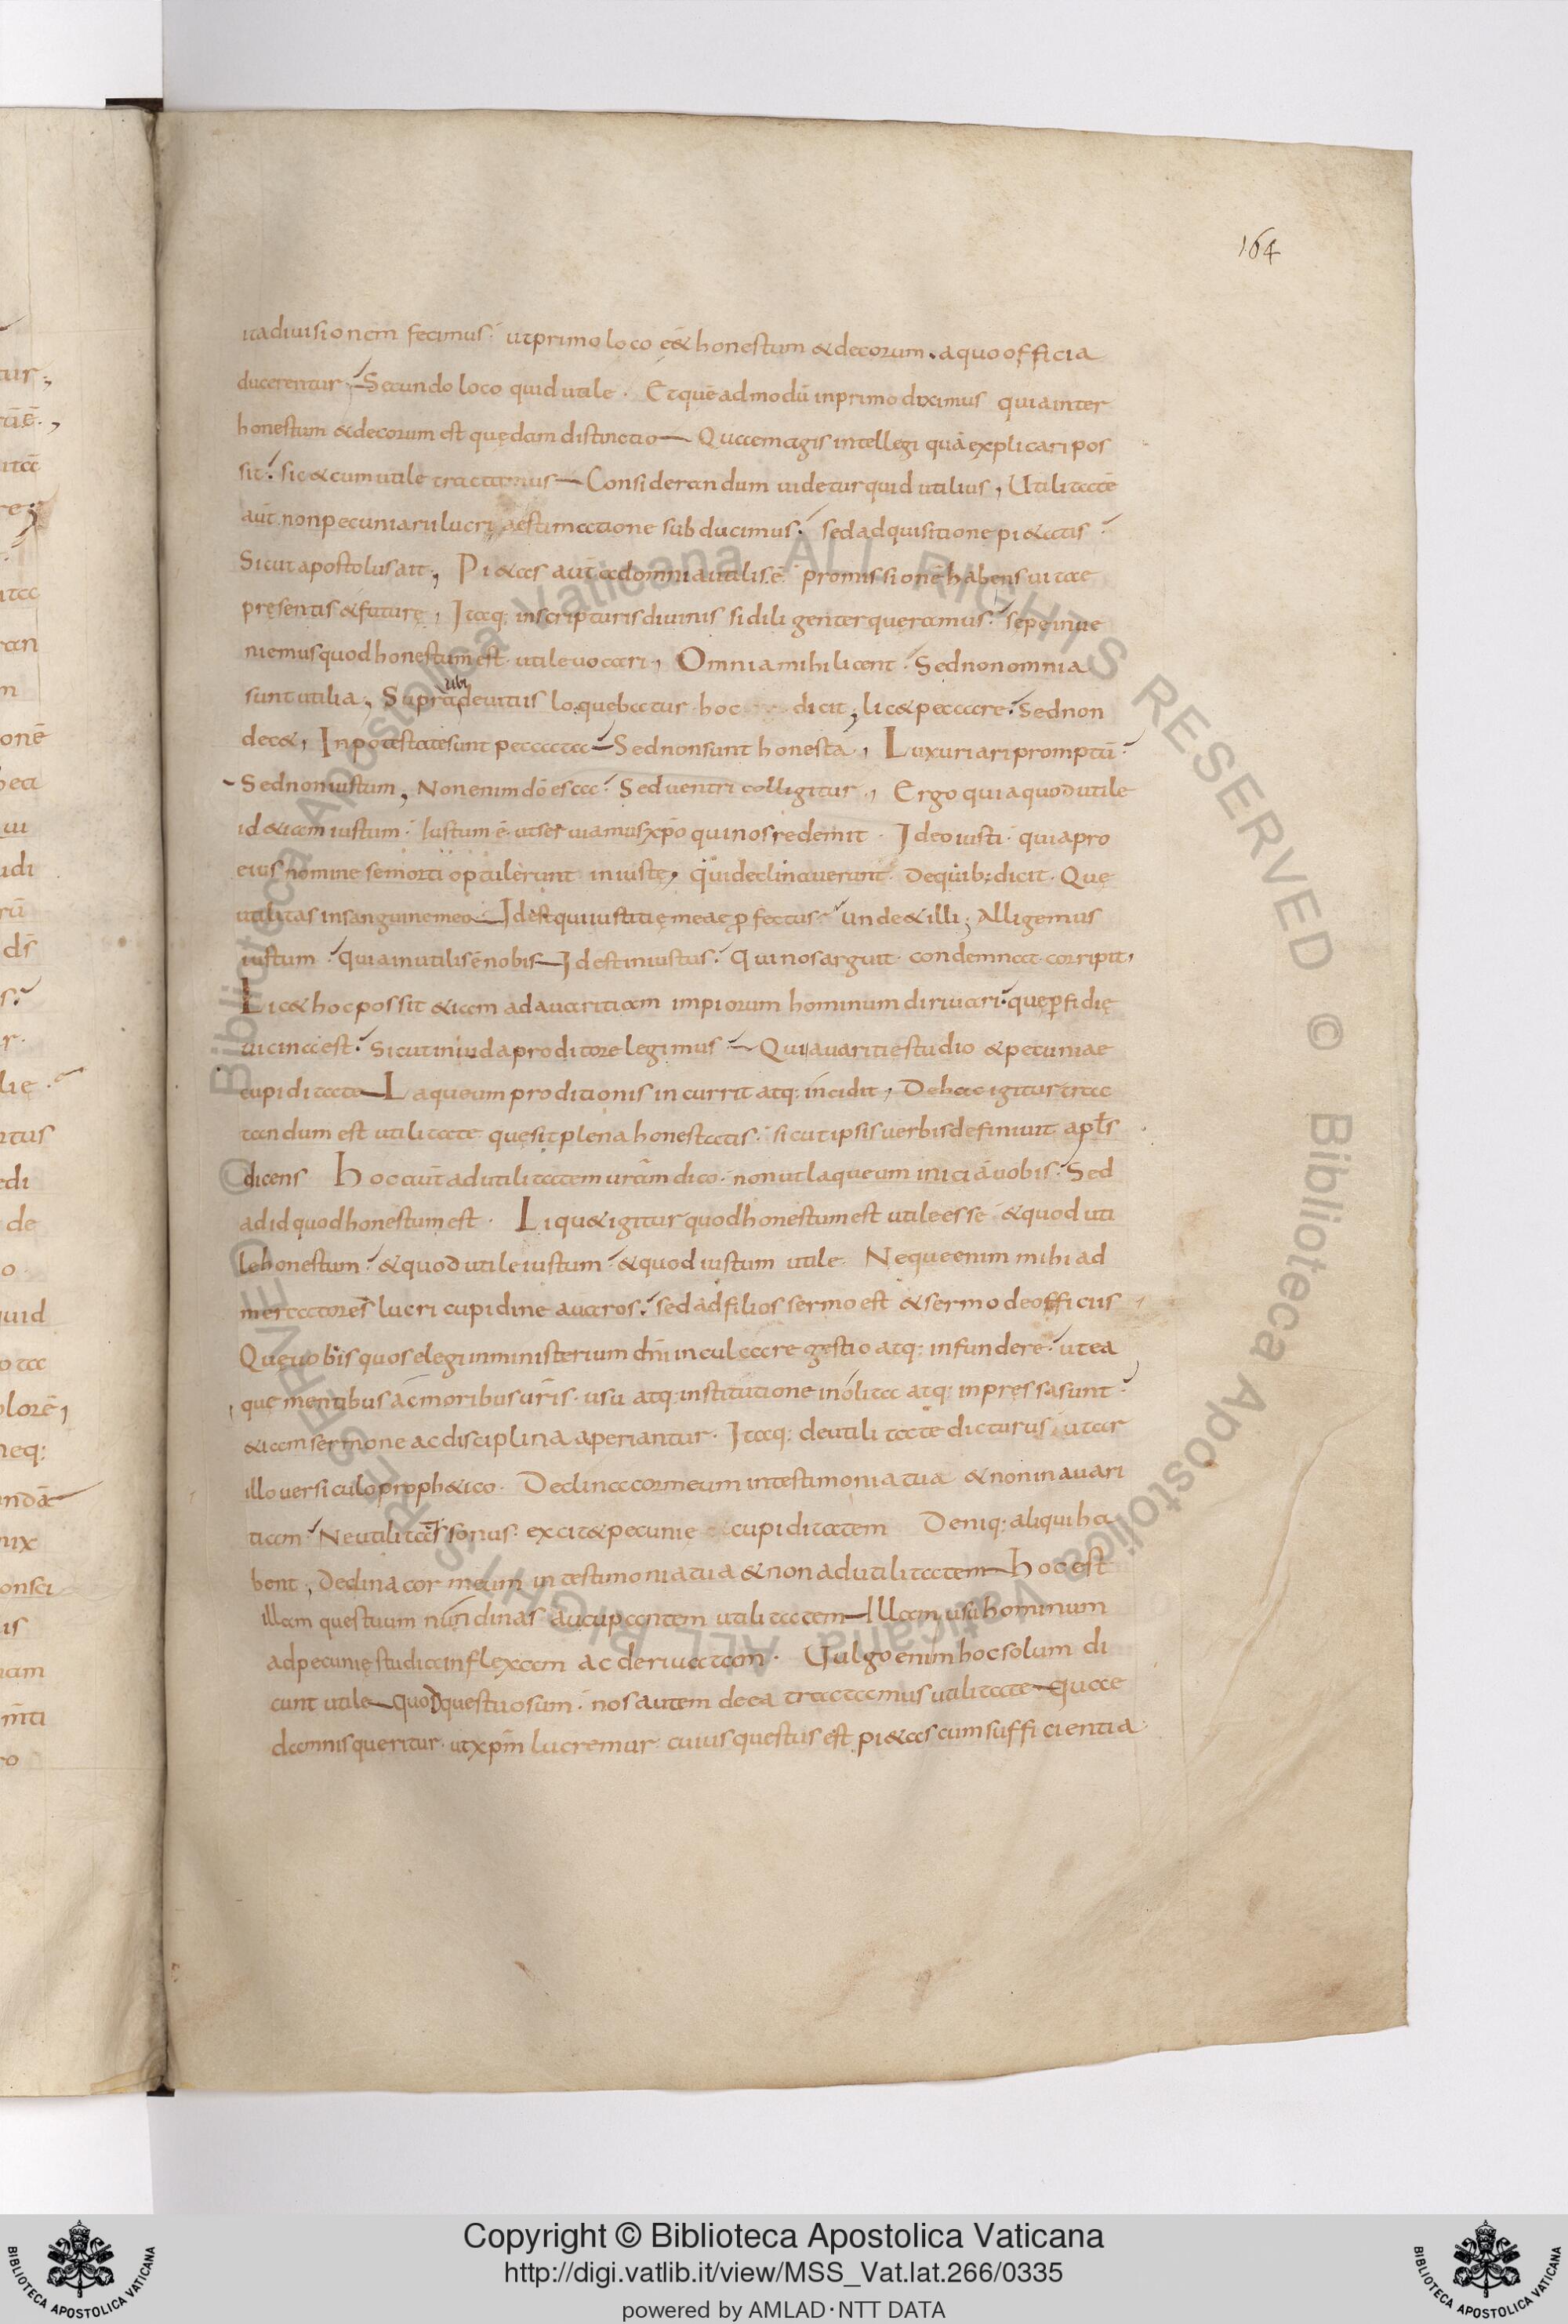 164
ita diuisionem fecimus. ut primo loco eẽ& honestum & decorum. a quo officia
ducerentur. Secundo loco quid utile. Et quẽ admodũ in primo diximus quia inter
honestum & decorum est quędam distinctio Quae magis intellegi quã explicari pos
sit. sic & cum utile tractamus Considerandum uidetur quid utilius, Utilitatẽ
aut̃ non pecuniarii lucri aestimatione subducimus. sed adquisitione pi&atis
Sicut apostolus ait, Pi&as aut̃ ad omnia utilis.ẽ. promissionẽ habens uitae
pręsentis & futurę, Itaq: in scripturis diuinis si diligenter queramus. sępe inue
niemus quod honestum est. utile uocari, Omnia mihi licent. Sed non omnia
sunt utilia, Supra ubi de uitiis loquebatur. hoc dicit, lic& peccare. Sed non
dec&, In potestate sunt peccata Sed non sunt honesta, Luxuriari promptũ.
Sed non iustum, Non enim dõ esca. Sed uentri colligitur, Ergo quia quod utile
id &iam iustum. Iustum ẽ. ut seruiamus xp̃o qui nos redemit. Ideo iusti. quia pro
eius nomine se morti optulerunt iniuste, qui declinauerunt. De quib: dicit. Que
utilitas in sanguine meo Id est qui iustitię meae ꝓfectus. unde & illi; Alligemus
iustum. quia inutilis ẽ nobis Id est iniustus. Qui nos arguit. condemnat. corripit,
Lic& hoc possit &iam ad auaritiam impiorum hominum diriuari. quę ꝑfidię
uicina est. Sicut in iuda proditore legimus. Qui auaritię studio & pecuniae
cupiditate Laqueum proditionis incurrit atq: incidit, De hac igitur trac
tandum est utilitate quę sit plena honestatis. sicut ipsis uerbis definiuit apl̃s
dicens Hoc aut̃ ad utilitatem ur̃am dico. non ut laqueum iniciã uobis. Sed
ad id quod honestum est. Liqu& igitur quod honestum est utile esse & quod uti
le honestum. & quod utile iustum. & quod iustum utile. Neque enim mihi ad
mercatores lucri cupidine auaros. sed ad filios sermo est & sermo de officiis
Que uobis quos elegi in ministerium dñi inculcare gestio atq: infundere. ut ea
quę mentibus ac moribus ur̃is. usu atq: institutione inolita atq: inpressa sunt.
&iam sermone ac disciplina aperiantur. Itaq: de utilitate dicturus, utar
illo uersiculo proph&ico. Declina cor meum in testimonia tua & non in auari
tiam. Ne utilitatis sonus. excit& pecunie cupiditatem Deniq: aliqui ha
bent, Declina cor meum in testimonia tua & non ad utilitatem Hoc est
illam questuum nundinas aucupantem utilitatem Illam usu hominum
ad pecunię studia inflexam ac deriuatam. Uulgo enim hoc solum di
cunt utile quod questuosum. nos autem de ea tractamus utilitate quae
damnis queritur. ut xp̃m lucremur cuius questus est pi&as cum sufficientia.
Copyright © Biblioteca Apostolica Vaticana
http://digi.vatlib.it/view/MSS_Vat.lat.266/0335
powered by AMLAD·NTT DATA